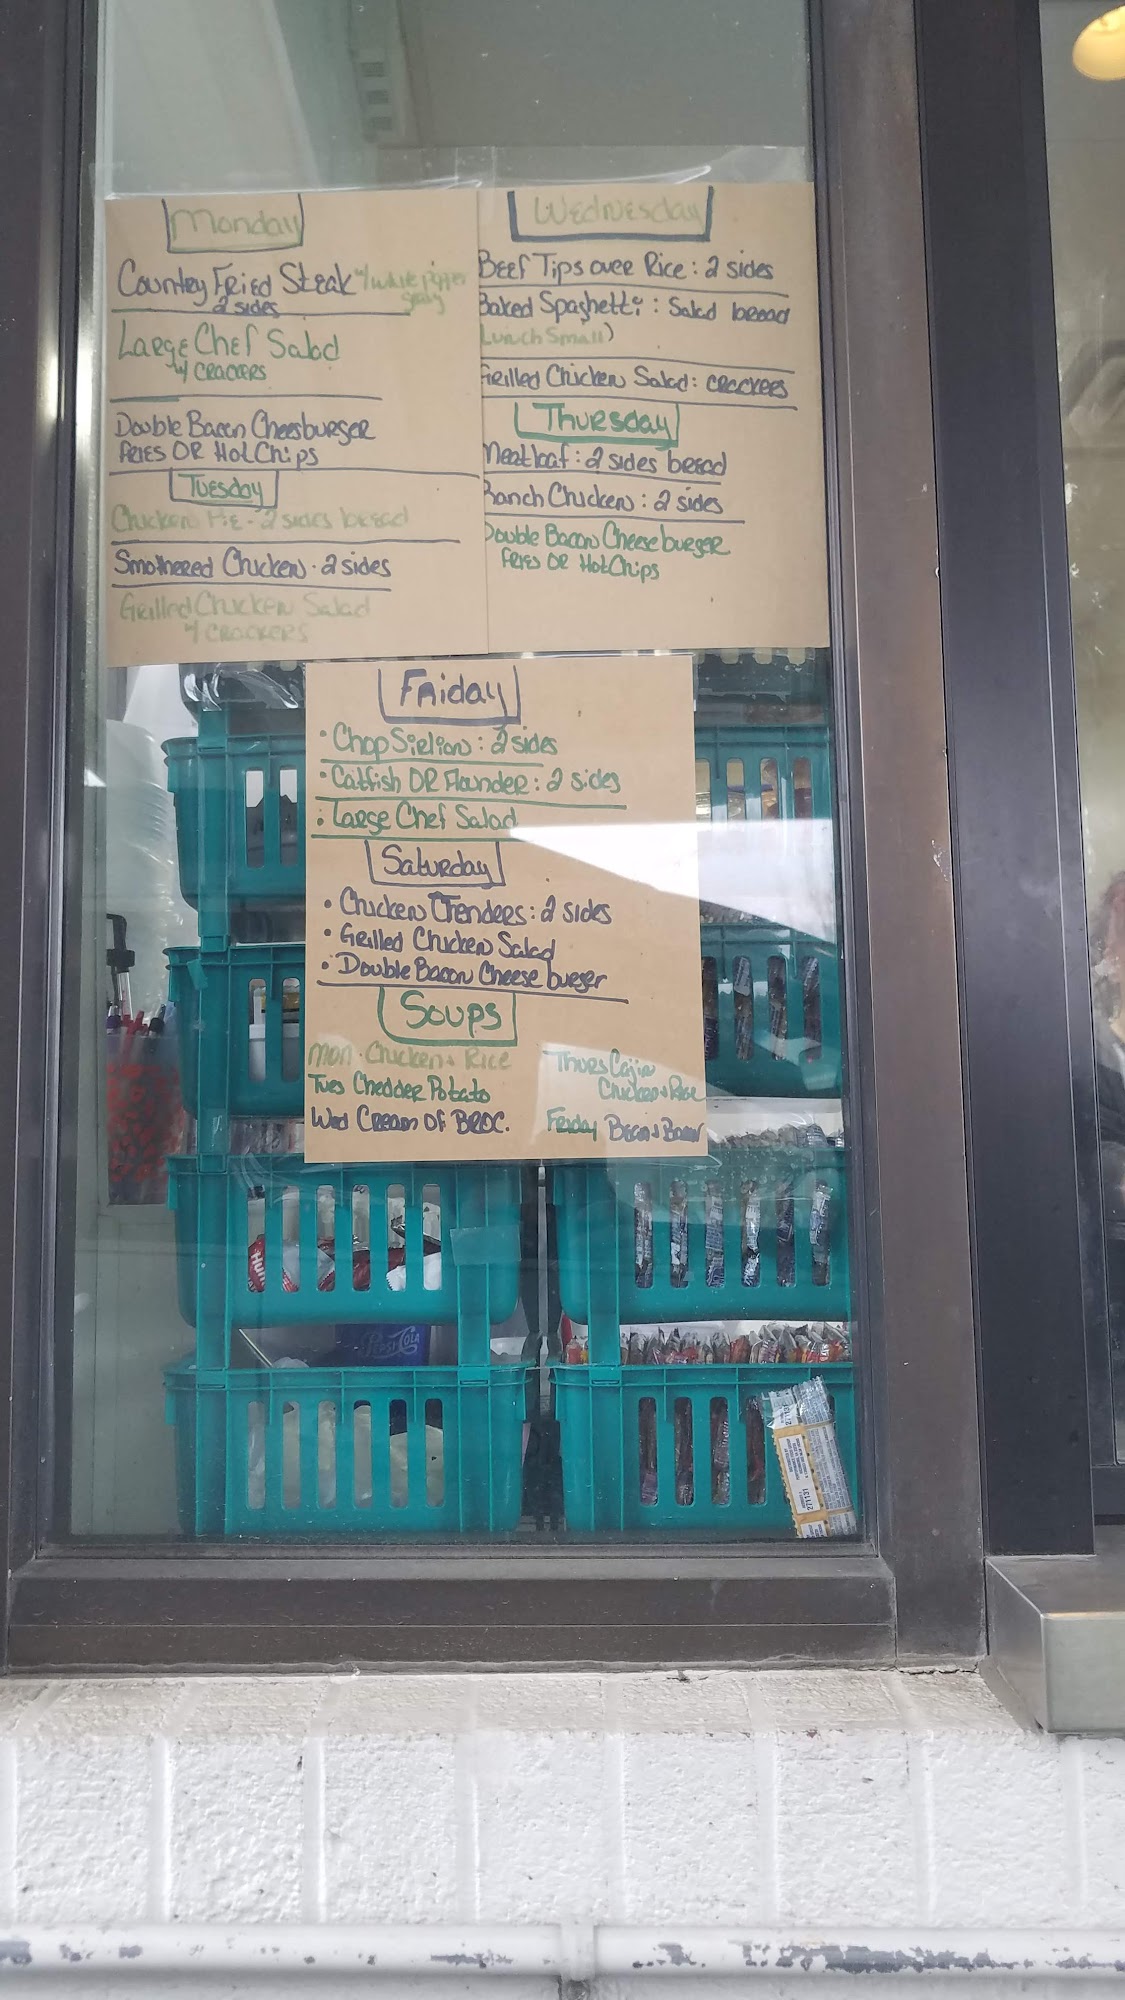 Monday
Country Fried Steak w/ white pepper gravy
2 sides
Large Chef Salad
w/ CRACKERS
Double Bacon Cheesburger
FRIES OR Hot Chips
Tuesday
Chicken Pie - 2 sides bread
Smothered Chicken - 2 sides
Grilled Chicken Salad
w/ CRACKERS
Wednesday
Beef Tips over Rice : 2 sides
Baked Spaghetti : Salad bread
(Lunch Small)
Grilled Chicken Salad : CRACKERS
Thursday
Meatloaf : 2 sides bread
Ranch Chicken : 2 sides
Double Bacon Cheeseburger
FRIES OR Hot Chips
Friday
• Chop Sirlion : 2 sides
• Catfish OR Flounder : 2 sides
• Large Chef Salad
Saturday
• Chicken Tenders : 2 sides
• Grilled Chicken Salad
• Double Bacon Cheese burger
Soups
Mon - Chicken + Rice
Tues Chedder Potato
Wed Cream Of BROC.
Thurs Cajin
Chicken + Rice
Friday Bean + Bacon
PEPSI-COLA
Hun